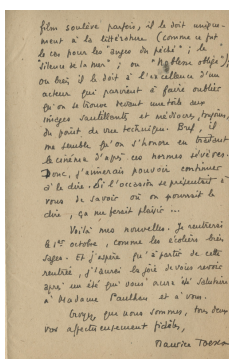 film soulève parfois, il le doit unique-
ment à la littérature (comme ce fut
le cas pour les "anges du péché" ; le
"silence de la mer" ; ou "Noblesse oblige") ;
ou bien il le doit à l'excellence d'un
acteur qui parvient à faire oublier
qu'on se trouve devant une toile aux
images sautillantes et médiocres, toujours,
du point de vue technique. Bref, il
me semble qu'on s'honore en traitant
le cinéma d'après ces normes sévères.
Donc, j'aimerais pouvoir continuer
à le dire. Si l'occasion se présentait à
vous de savoir où on pourrait le
dire, ça me ferait plaisir ...
Voilà mes nouvelles. Je rentrerai
le 1er octobre, comme les écoliers bien
sages. Et j'espère qu'à partir de cette
rentrée, j'aurai la joie de vous revoir
après un été qui vous aura été salutaire
à Madame Paulhan et à vous.
Croyez que nous sommes, tous deux
vos affectueusement fidèles,
Maurice Toesca